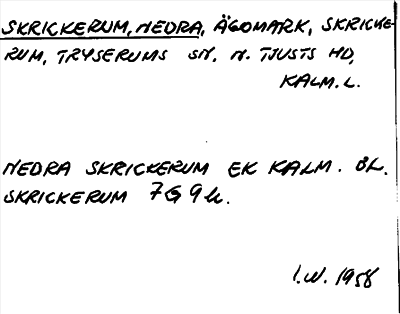 SKRICKERUM, NEDRA, ÄGOMARK, SKRICKE-
RUM, TRYSERUMS SN, N. TJUSTS HD,
KALM. L.
NEDRA SKRICKERUM EK KALM. BL.
SKRICKERUM 7G9h.
I.W. 1958